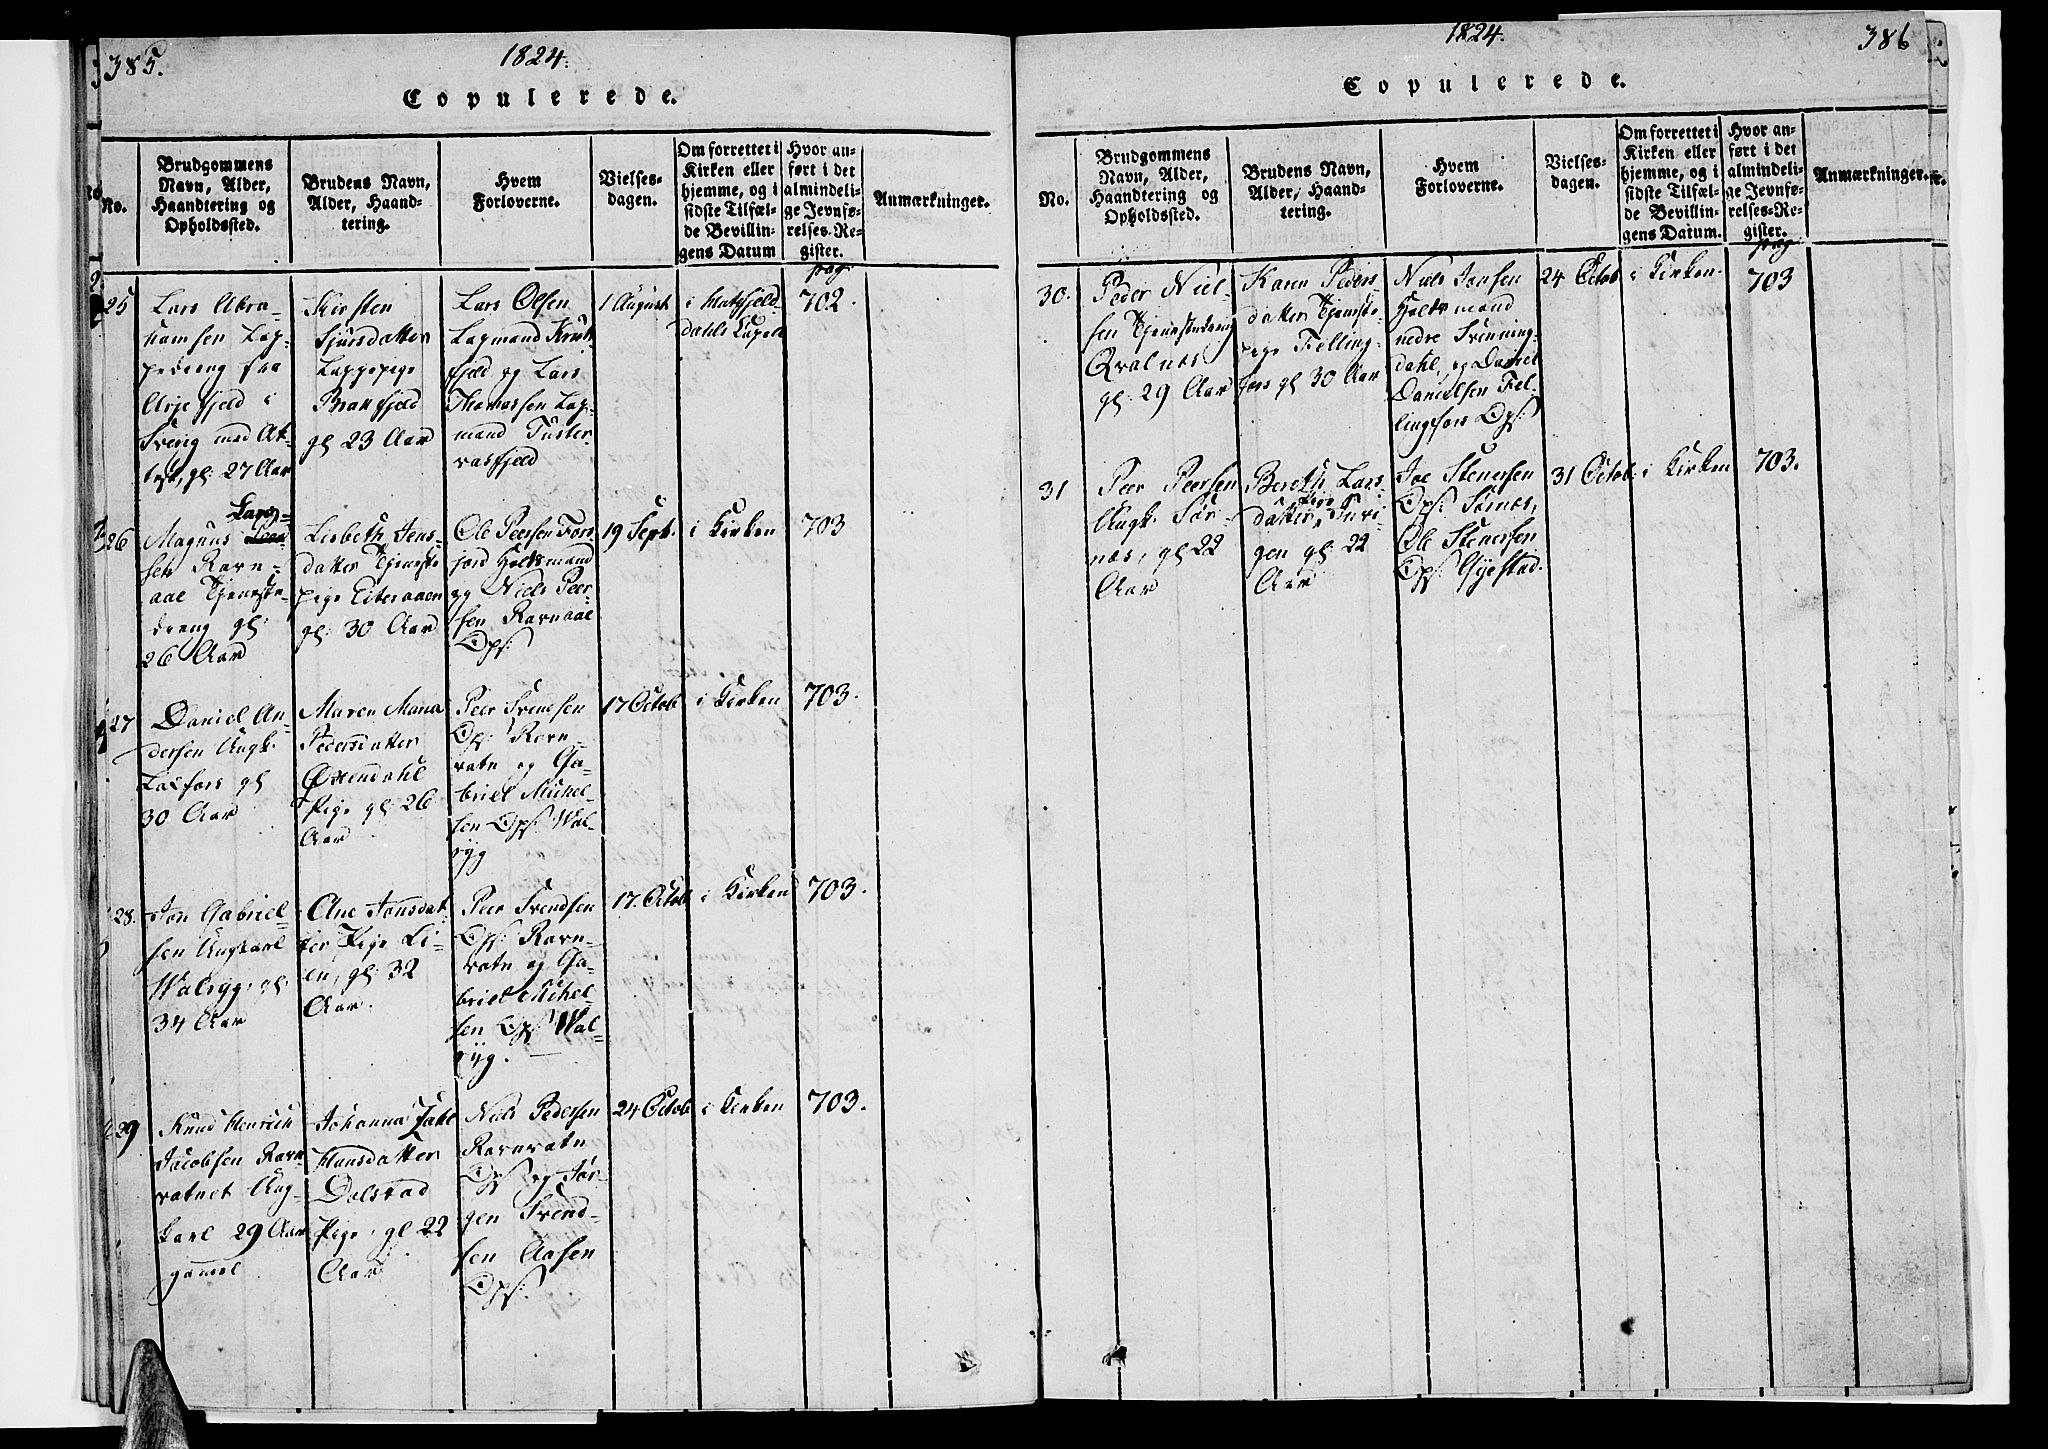 385.
1824.
Copulerede.
No.
Brudgommens
Navn, Alder,
Haandtering og
Opholdssted.
Brudens Navn,
Alder, Haand-
tering.
Hvem
Forloverne.
Vielses-
dagen.
Om forrettet i
Kirken eller
hjemme, og i
sidste Tilfæl-
de Bevillin-
gens Datum
Hvor an-
ført i det
almindeli-
ge Jevnfø-
relses-Re-
gister.
Anmærkninger.
25
Lars Abra-
hamsen Lap-
pedreng fra
Arjefjeld i
Sverig med At-
test, gl: 27 Aar
Kirsten
Sjursdatter
Lappepige
gl 23 Aar
Lars Olsen
Lapmand
fjeld og Lars
Thomassen Lap-
mand Tuster
vasfjeld
1 August
i Hatfjeld
dahls Capel
pag
702.
26
Magnus Lars-
sen Ravn-
aae Tjeneste-
dreng gl:
26 Aar
Lisbeth Jens-
datter Tjeneste
pige Eiteraaen
gl: 30 Aar
Ole Peersen Fors
jord Holtsmand
og Niels Peer
sen Ravnaae
Ops:
19 Septr.
i Kirken
703
27
Daniel An-
dersen Ungk:
Laxfors gl
30 Aar
Maren Maria
Pedersdatter
Øxendahl
Pige gl: 26
Aar
Peer Svendsen
Ops: Ravn-
vatn og Ga-
briel Michel-
sen Ops: Wal-
ryg
17 Octob
i Kirken
703.
28.
Jon Gabriel-
sen Ungkarl
Walryg. gl:
34 Aar
Ane Jonsdat
ter Pige Li-
en, gl: 32
Aar.
Peer Svendsen
Ops: Ravn-
vatn og Ga-
briel Michel-
sen Ops: Wal-
ryg.
17. Octob
i Kirken
703.
29
Knud Henrich
Jacobsen Ravn
vatnet Ung-
karl 29 Aar
gamel
Johanna
Hansdatter
Dolstad
Pige, gl 22
Aar
Niels Pedersen
Ravnvatn
Ops og Jør-
gen Svend-
sen Aasen
Ops:
24 Octob
i Kirken
703.
1824.
386
Copulerede.
No.
Brudgommens
Navn, Alder,
Haandtering og
Opholdssted.
Brudens Navn,
Alder, Haand-
tering.
Hvem
Forloverne.
Vielses-
dagen.
Om forrettet i
Kirken eller
hjemme, og i
sidste Tilfæl-
de Bevillin-
gens Datum.
Hvor an-
ført i det
almindeli-
ge Jevnfø-
relses-Re-
gister.
Anmærkninger.
30.
Peder Niel-
sen Tjenestedreng
Qvalnes
gl: 29 Aar
Karen Peders
datter Tjeneste-
pige Felling-
fors gl: 30 Aar
Niels Jonsen
Holtsmand
nedre Svenning-
dahl, og Daniel
Danielsen Fel-
lingfors Ops:
24 Octob
i Kirken.
pag
703
31
Peer Peersen
Ungk: Sør-
næs, gl 22
Aar
Bereth Lars
datter, Pige Turi-
gen gl: 22
Aar
Joe Stenersen
Ops: Sørnes,
Ole Stenersen
Ops:
31 Octob:
i Kirken
703.